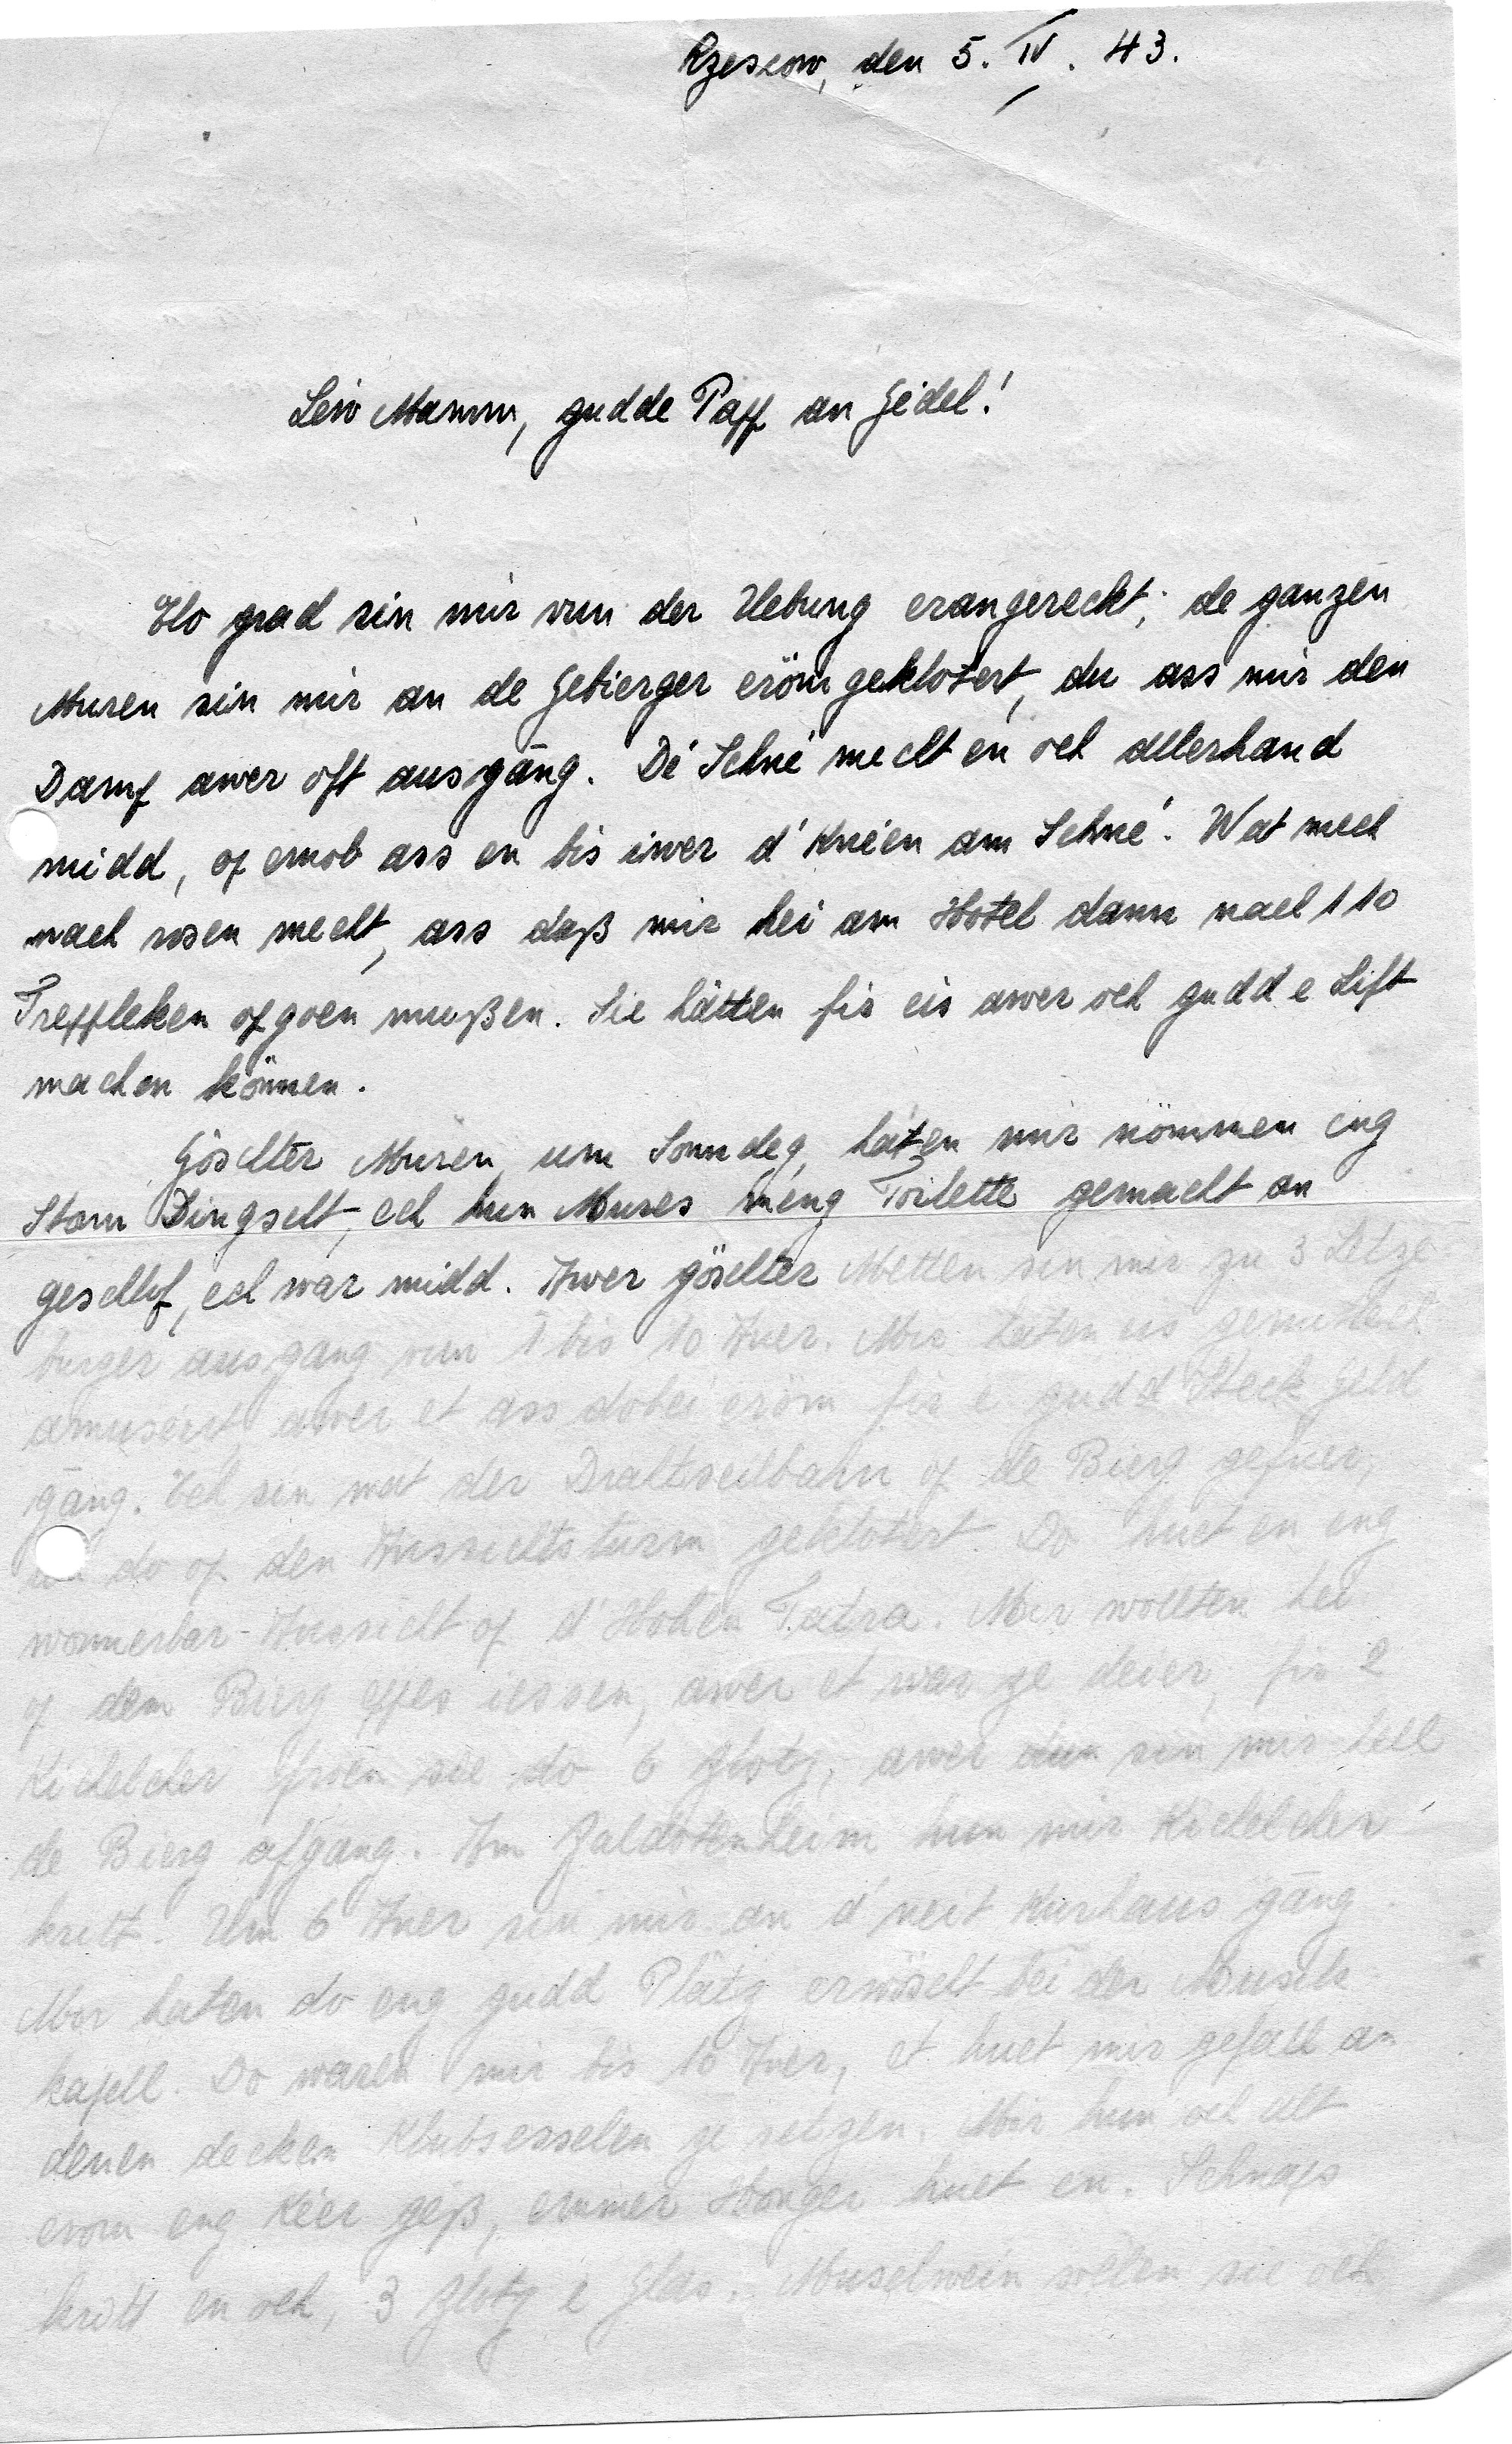 Rzeszow, den 5. IV. 43.
Léiw Mamm, gudde Papp an Gédel!
Elo grad sin mir vun der Uebung erangereckt; de ganzen
Muren sin mir an de Gebierger eröm geklotert, du ass mir den
Damp awer oft ausgäng. Dé Schné mecht én och allerhand
midd, op emol ass en bis iwer d'Knéien am Schné. Wat mech
nach rosen mecht, ass daß mir hei am Hotel dann nach 110
Trepplecher opgoen mußen. Sie hätten fir eis awer och gudd e Lift
machen können.
Göschter Muren, um Sonndeg, haten mir nömmen eng
Stonn Dingscht, ech hun Mures méng Toilette gemacht an
geschlof, ech war midd. Awer göschter Metten sin mir zu 3 Letze-
burger ausgang vun 1 bis 10 Auer. Mir haten eis
amuséirt, awer et ass dobei eröm fir e gudd Steck Geld
gäng. Ech sin mat der Drahtseilbahn op de Bierg gefuer,
do op den Aussichtsturm geklotert. Do huet en eng
wonnerbar Aussicht op d'Hohen Tatra. Mir wollten hei
op dem Bierg eppes iessen, awer et war ze deier, fir 2
Kichelcher froen sie do 6 Zloty, awer dun sin mir hell
de Bierg ofgang. Am Zaldotenheim hun mir Kichelcher
kritt. Um 6 Auer sin mir an d'neit Kurhaus gäng.
Mir haten do eng gudd Plätz erwöscht bei der Musek-
kapell. Do waren mir bis 10 Auer, et huet mir gefall an
denen decken Klubsesselen ze setzen. Mir hun och alt
erom eng Kéer giß, emmer Honger huet en. Schnaps
kritt en och, 3 Zloty e Glas. Muselwein sollen sie och